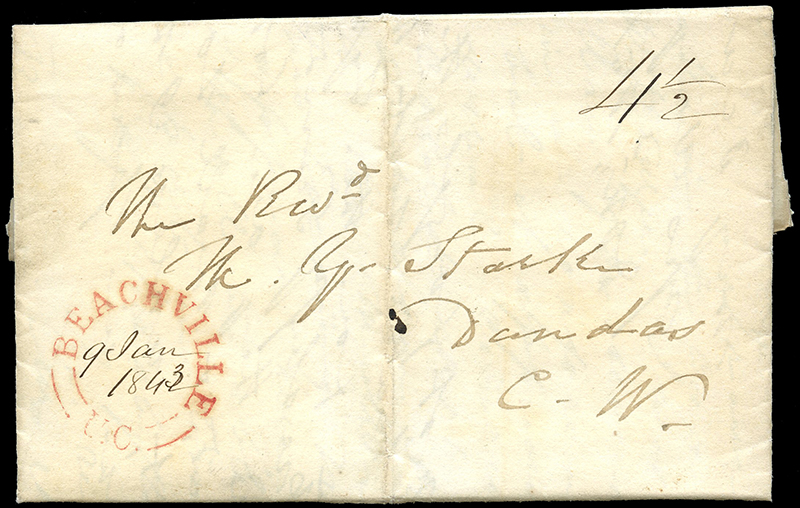 4 1/2
The Revd
M. Y. Stark
Dundas
C. W.
BEACHVILLE
9 Jan
1843
U.C.